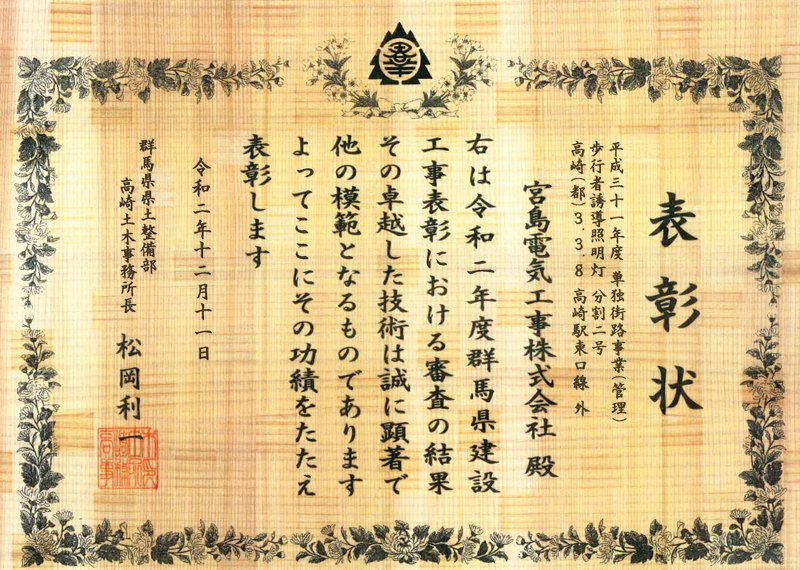 表彰状
平成三十一年度 単独街路事業（管理）
歩行者誘導照明灯 分割二号
高崎（都）３．３．８ 高崎駅東口線 外
宮島電気工事株式会社 殿
右は令和二年度群馬県建設
工事表彰における審査の結果
その卓越した技術は誠に顕著で
他の模範となるものであります
よってここにその功績をたたえ
表彰します
令和二年十二月十一日
群馬県県土整備部
高崎土木事務所長
松岡利一